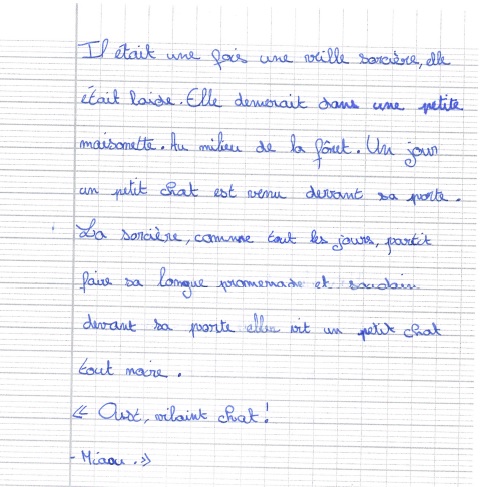 Il était une fois une vieille sorcière, elle
était laide. Elle demerait dans une petite
maisonette. Au milieu de la fôret. Un jour
un petit chat est venu devant sa porte.
La sorcière, comme tout les jours, partit
faire sa longue promemade et soudain
devant sa porte elle vit un petit chat
tout noire.
« Oust, vilaint chat !
- Miaou. »